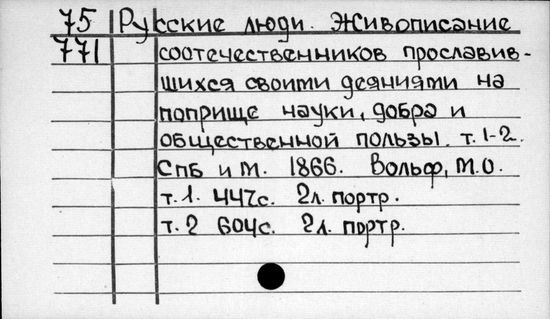 75 Русские люди. Живописание
771 соотечественников прославив-
шихся своими деяниями на
поприще науки, добра и
общественной пользы. т. 1-2.
СПБ и М. 1866. Вольф, М.О.
т. 1. 447с. 2л. портр.
т. 2 604с. 2л. портр.